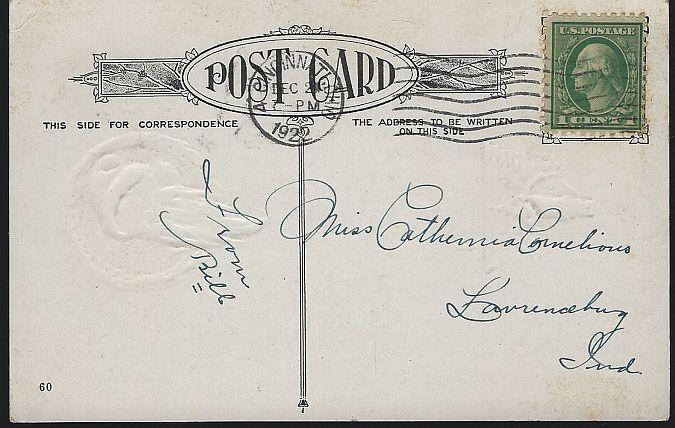 POST CARD
CINCINNATI, OHIO
DEC 2
PM
1922
U.S. POSTAGE
1 CENT 1
THIS SIDE FOR CORRESPONDENCE
THE ADDRESS TO BE WRITTEN
ON THIS SIDE
From
Bill
Miss Cathernia Cornelious
Lawrenceburg
Ind.
60